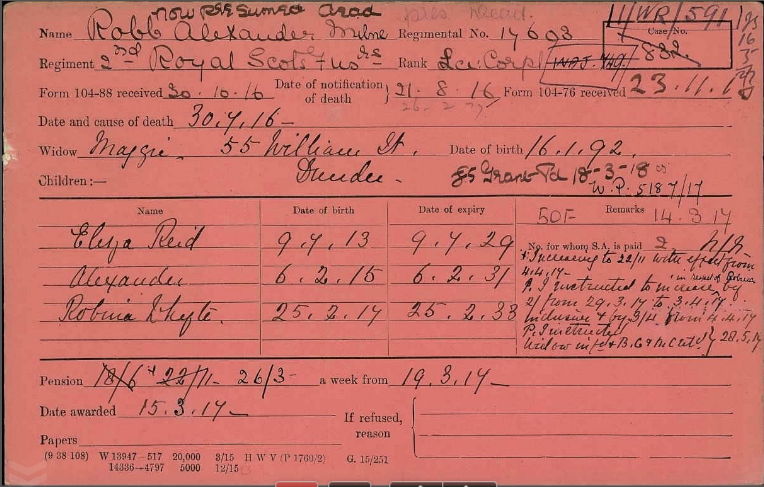 now presumed dead pres dead.
Name Robb Alexander Milne Regimental No. 17603 11/WR/591
Case/No. 832
Regiment 2nd Royal Scots Fusrs Rank Lce. Corpl
Form 104-88 received 30.10.16 Date of notification of death } 21.8.16 Form 104-76 received 23.11.16
Date and cause of death 30.7.16 —
Widow Maggie. 55 William St. Date of birth 16.1.92.
Children:— Dundee. £5 Grant Pd 18-3-18
W.P. 5187/17
Name Date of birth Date of expiry 50F Remarks 14.3.17
Eliza Reid 9.7.13 9.7.29 No. for whom S.A. is paid 2
Alexander 6.2.15 6.2.31
Robina Whyte. 25.2.17 25.2.33
Increasing to 22/11 with effect from
4.4.17 — in respect of Robina
P.I instructed to increase by
2/ from 29.3.17 to 3.4.17
inclusive & by 3/4 from 4.4.17
P.I instructed
28.5.17
Pension 18/6 + 22/11 - 26/3 - a week from 19.3.17 —
Date awarded 15.3.17 — If refused, reason
Papers
(9 38 108) W 13947—517 20,000 3/15 H W V (P 1760/2) G. 15/251
14336—4797 5000 12/15